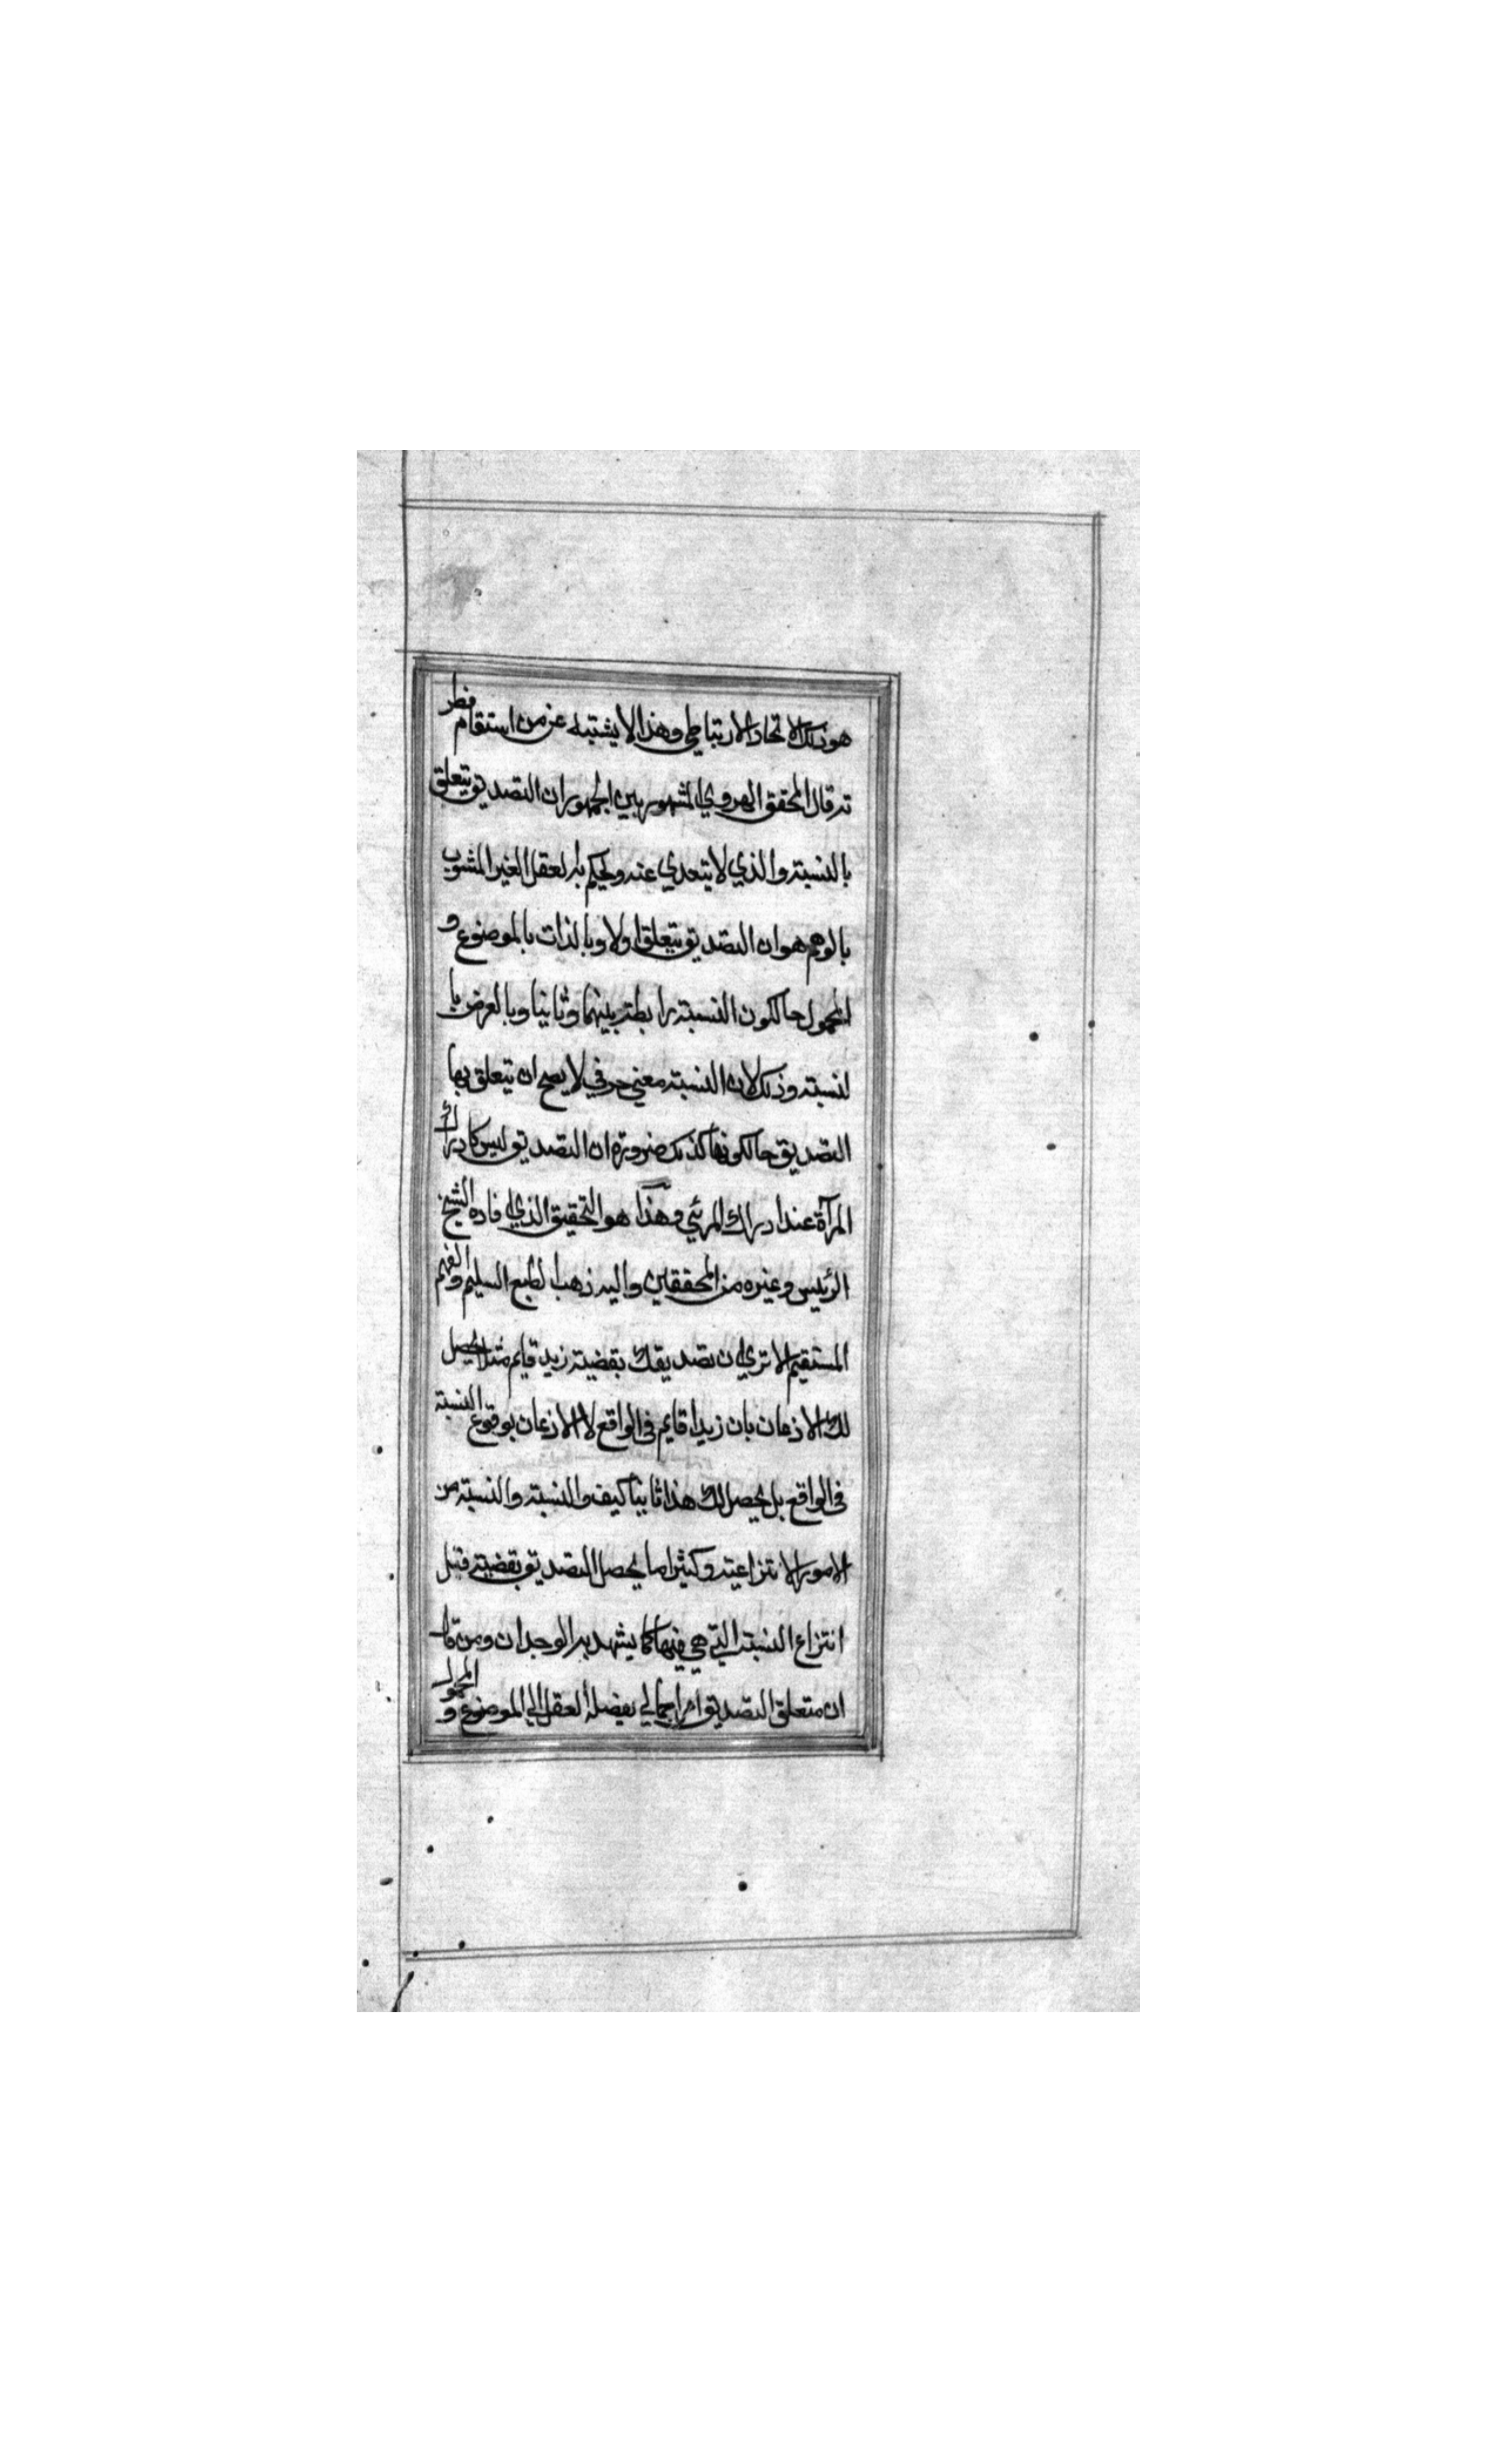 هو ذلك الاتحاد الارتباطي وهذا لا يشتبه عن من استقام فطر
ته قال المحقق الهروي المشهور بين الجمهور ان التصديق يتعلق
بالنسبته والذي لا يتعدي عنه ويحكم به لعقل الغير المشوب
بالوهم هو ان التصديق يتعلق اولا وبالذات بالموضوع و
المحمول حالكون النسبته رابطته بينهما وثانيا وبالعرض با
لنسبته وذلك لان النسبته معني حرفي لا يصح ان يتعلق بها
التصديق حالكونها كذلك ضرورة ان التصديق ليس كادراك
المرآة عند ادراك المرئي وهكذا هو التحقيق الذي افاده الشيخ
الرئيس وغيره من المحققين واليه ذهب الطبع السليم والفهم
المستقيم الا تري ان تصديقك بقضيته زيد قايم مثلا يحصل
لك الاذعان بان زيدا قايم في الواقع لا الاذعان بوقوع النسبته
في الواقع بل يحصل لك هذا ثانيا كيف والنسبته والنسبته من
الامور الانتزاعيته وكثيرا ما يحصل التصديق بقضيته قبل
انتزاع النسبته التي هي فيها كما يشهد به الوجدان ومن قال
ان متعلق التصديق امر اجمالي يفضله العقل الي الموضوع و المحمول